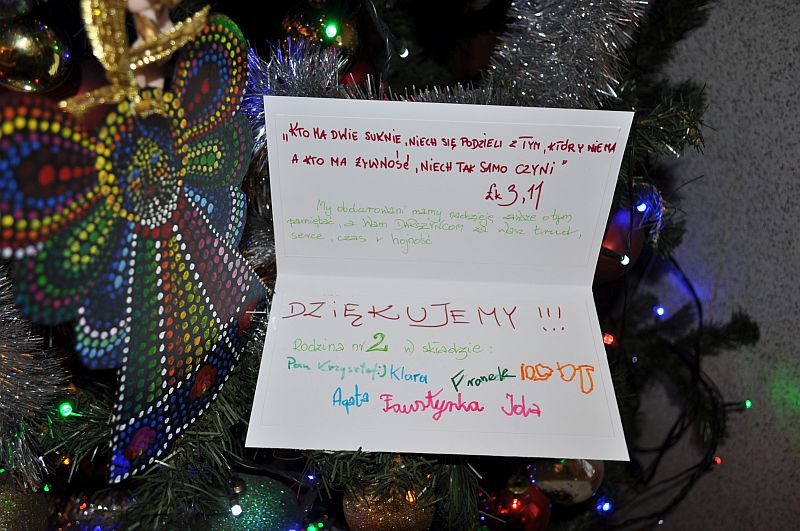 „KTO MA DWIE SUKNIE, NIECH SIĘ PODZIELI Z TYM, KTÓRY NIE MA
A KTO MA ŻYWNOŚĆ, NIECH TAK SAMO CZYNI”
Łk 3,11
My obdarowani mamy nadzieję zawsze o tym
pamiętać, a Wam DARSZYŃCOM za wasz trud,
serce, czas i hojność
DZIĘKUJEMY !!!
Rodzina nr 2 w składzie:
Pan Krzysztof:) Klara Franek
Agata Faustynka Jola